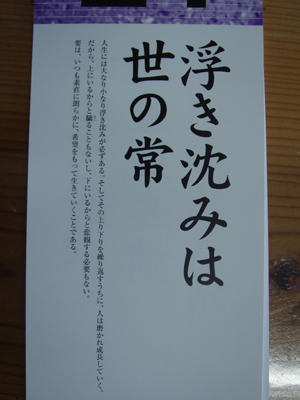 浮き沈みは
世の常
人生には大なり小なり浮き沈みが必ずある。そしてその上り下りを繰り返すうちに、人は磨かれ成長していく。
だから、上にいるからと驕ることもないし、下にいるからと悲観する必要もない。
要は、いつも素直に朗らかに、希望をもって生きていくことである。